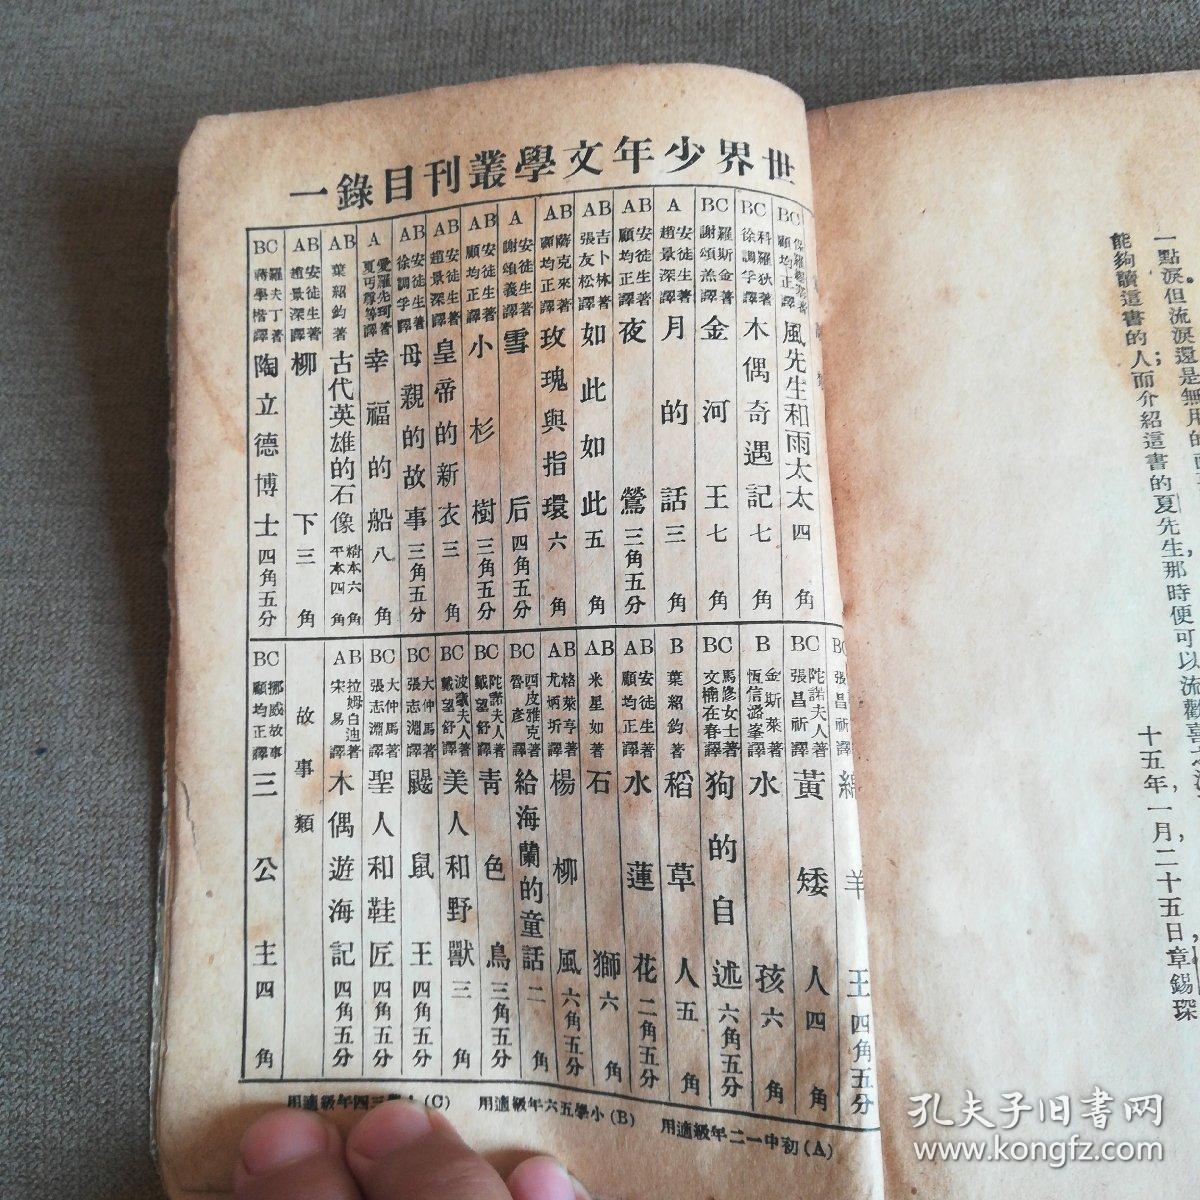 世界少年文學叢刊目錄一
BC 保羅繆塞著 顧均正譯 風先生和雨太太 四角
BC 科羅狄著 徐調孚譯 木偶奇遇記 七角
BC 羅斯金著 謝頌羔譯 金河王 七角
A 安徒生著 趙景深譯 月的話 三角
AB 安徒生著 顧均正譯 夜鶯 三角五分
AB 吉卜林著 張友松譯 如此如此 五角
AB 薩克萊著 顧均正譯 玫瑰與指環 六角
A 安徒生著 謝頌義譯 雪后 四角五分
AB 安徒生著 顧均正譯 小杉樹 三角五分
AB 安徒生著 趙景深譯 皇帝的新衣 三角
AB 安徒生著 徐調孚譯 母親的故事 三角五分
A 愛羅先珂著 夏丏尊等譯 幸福的船 八角
AB 葉紹鈞著 古代英雄的石像 精本六角 平本四角
AB 安徒生著 趙景深譯 柳下 三角
BC 羅夫丁著 蔣學楷譯 陶立德博士 四角五分
BC 張昌祈譯 綿羊王 四角五分
BC 陀諾夫人著 張昌祈譯 黃矮人 四角
B 金斯萊著 恆信潞峯譯 水孩 六角
BC 馬修女士著 文楠在春譯 狗的自述 六角五分
B 葉紹鈞著 稻草人 五角
AB 安徒生著 顧均正譯 水蓮花 二角五分
AB 米星如著 石獅 六角
AB 格萊亨著 尤炳圻譯 楊柳風 六角五分
BC 西皮雅克著 魯彥譯 給海蘭的童話 二角
BC 陀諾夫人著 戴望舒譯 靑色鳥 三角五分
BC 波豪夫人著 戴望舒譯 美人和野獸 三角
BC 大仲馬著 張志淵譯 鼹鼠王 四角五分
BC 大仲馬著 張志淵譯 聖人和鞋匠 四角五分
AB 拉姆白迪著 宋易譯 木偶遊海記 四角五分
故事類
BC 挪威故事 顧均正譯 三公主 四角
(A)初中一二年級適用 (B)小學五六年級適用 (C)小學三四年級適用
能夠讀這書的人而介紹這書的夏先生那時便可以流歡喜
十五年，一月二十五日章錫琛
孔夫子旧書网
www.kongfz.com